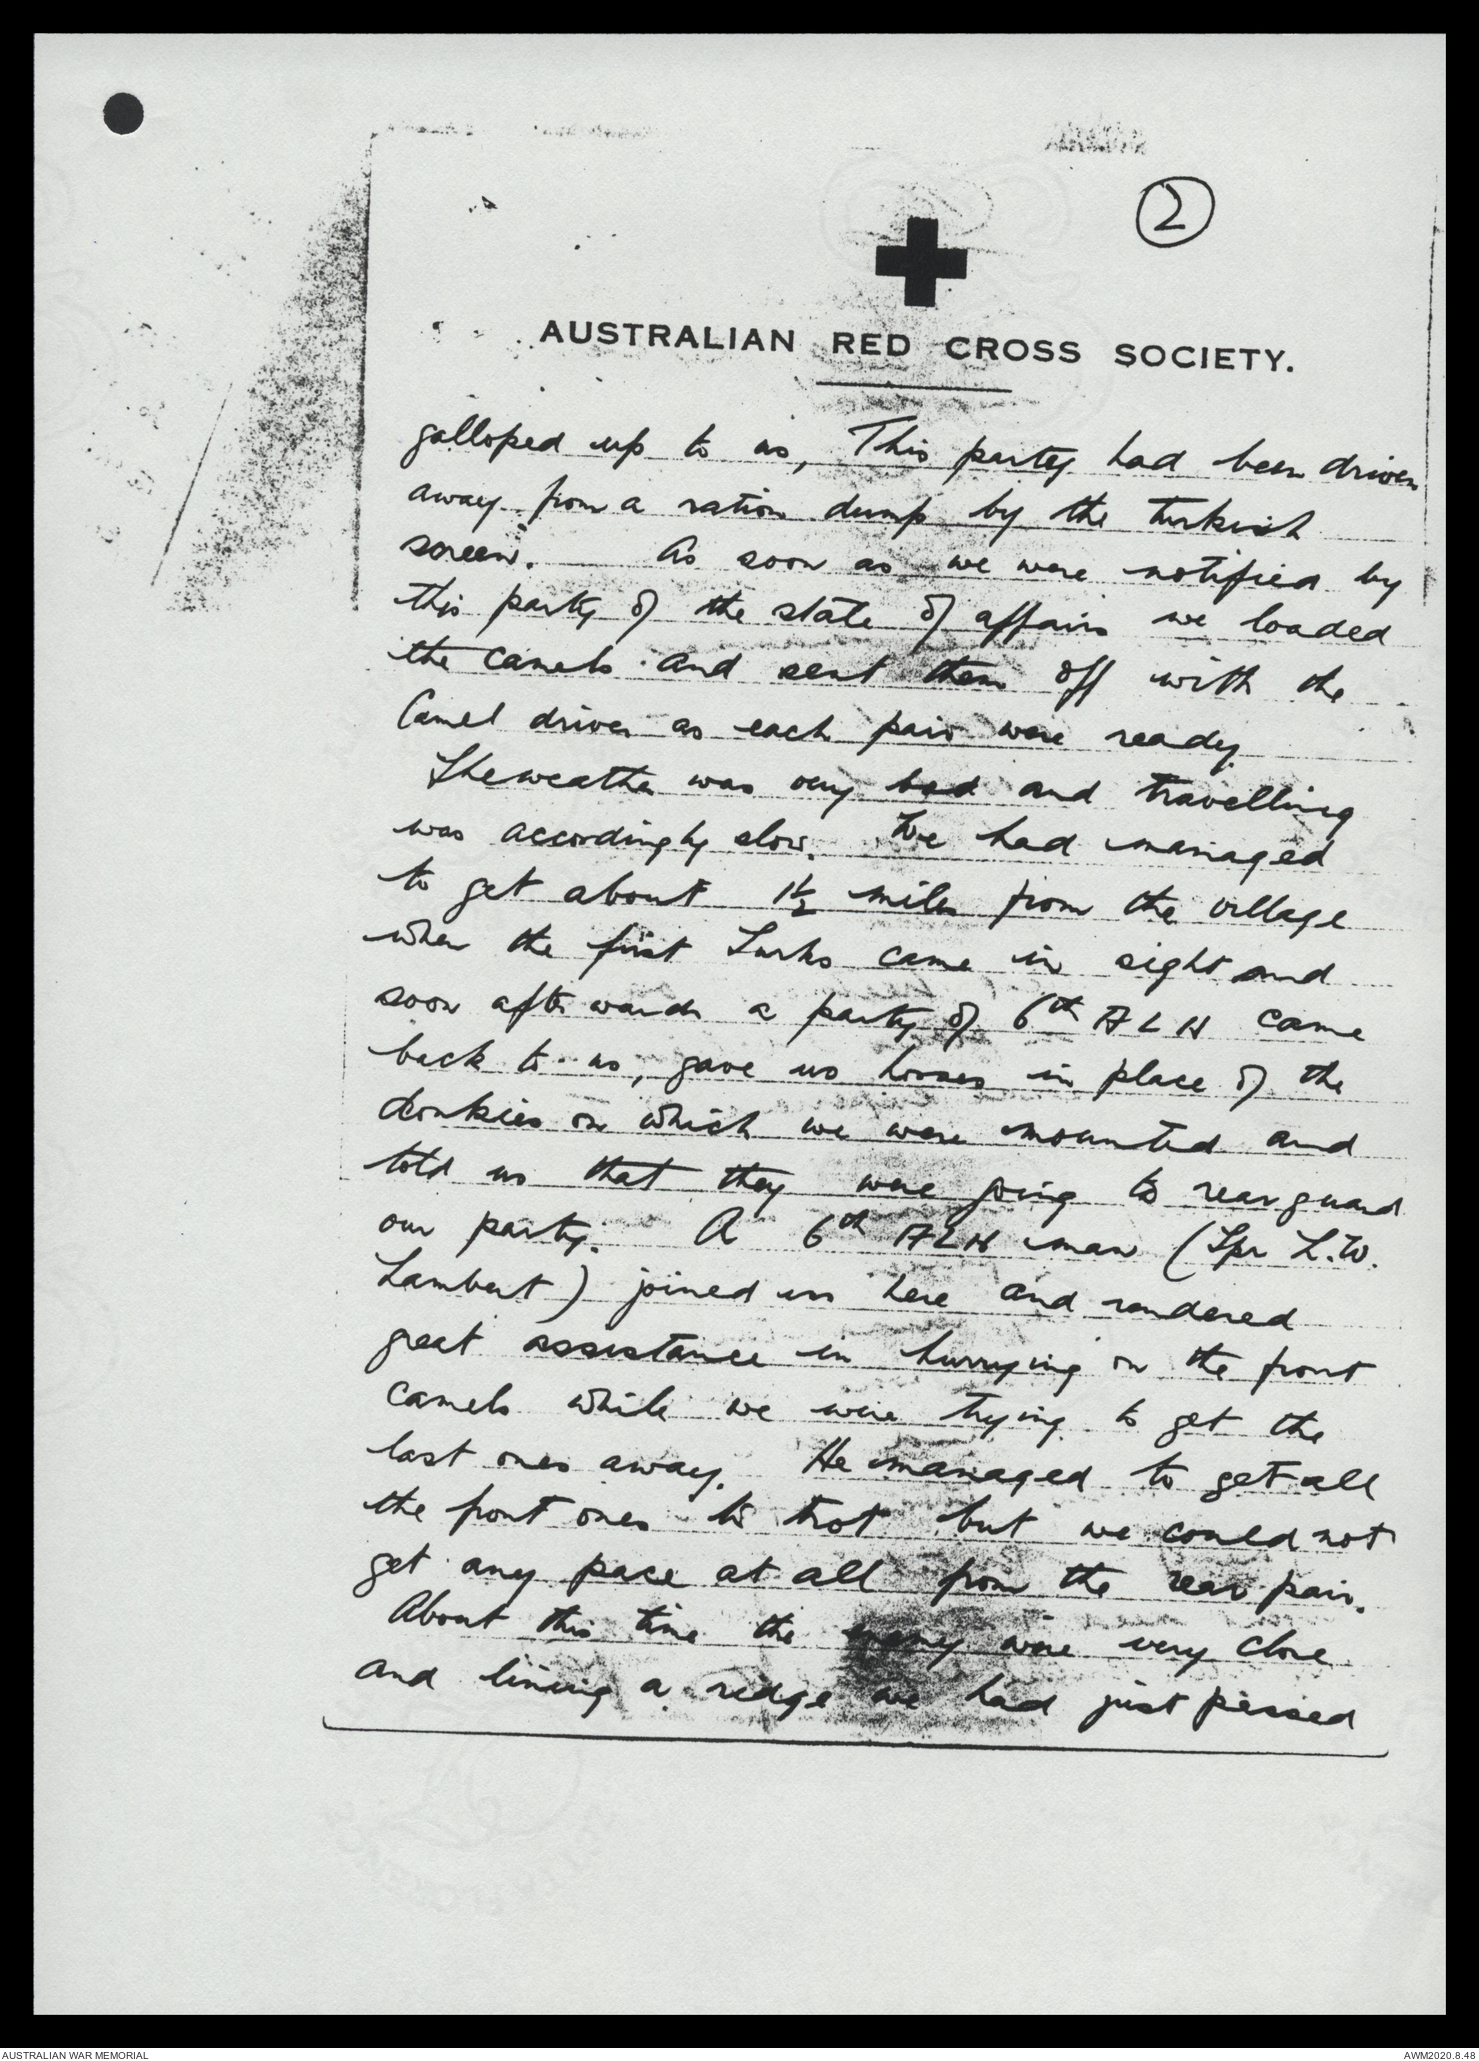 2
AUSTRALIAN RED CROSS SOCIETY.
galloped up to us, This party had been driven
away from a ration dump by the Turkish
screen. As soon as we were notified by
this party of the state of affairs we loaded
the camels and sent them off with the
Camel driver as each pair were ready
The weather was very bad and travelling
was accordingly slow. We had managed
to get about 1½ miles from the village
when the first Turks came in sight and
soon afterwards a party of 6th ALH came
back to us, gave us horses in place of the
donkies on which we were mounted and
told us that they were going to rearguard
our party. A 6th ALH man (Tpr L.W.
Lambert) joined us here and rendered
great assistance in hurrying on the front
camels while we were trying to get the
last ones away. He managed to get all
the front ones to trot but we could not
get any pace at all from the rear pair.
About this time the enemy were very close
and lining a ridge we had just passed
AUSTRALIAN WAR MEMORIAL
AWM2020.8.48